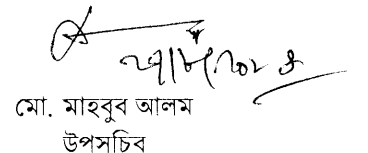 মো. মাহবুব আলম
উপসচিব